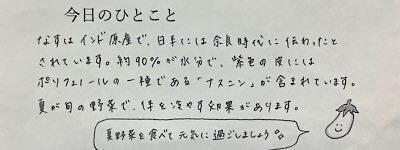 今日のひとこと
なすはインド原産で、日本には奈良時代に伝わったと
されています。約90%が水分で、紫色の皮には
ポリフェノールの一種である「ナスニン」が含まれています。
夏が旬の野菜で、体を冷やす効果があります。
夏野菜を食べて元気に過ごしましょう♪